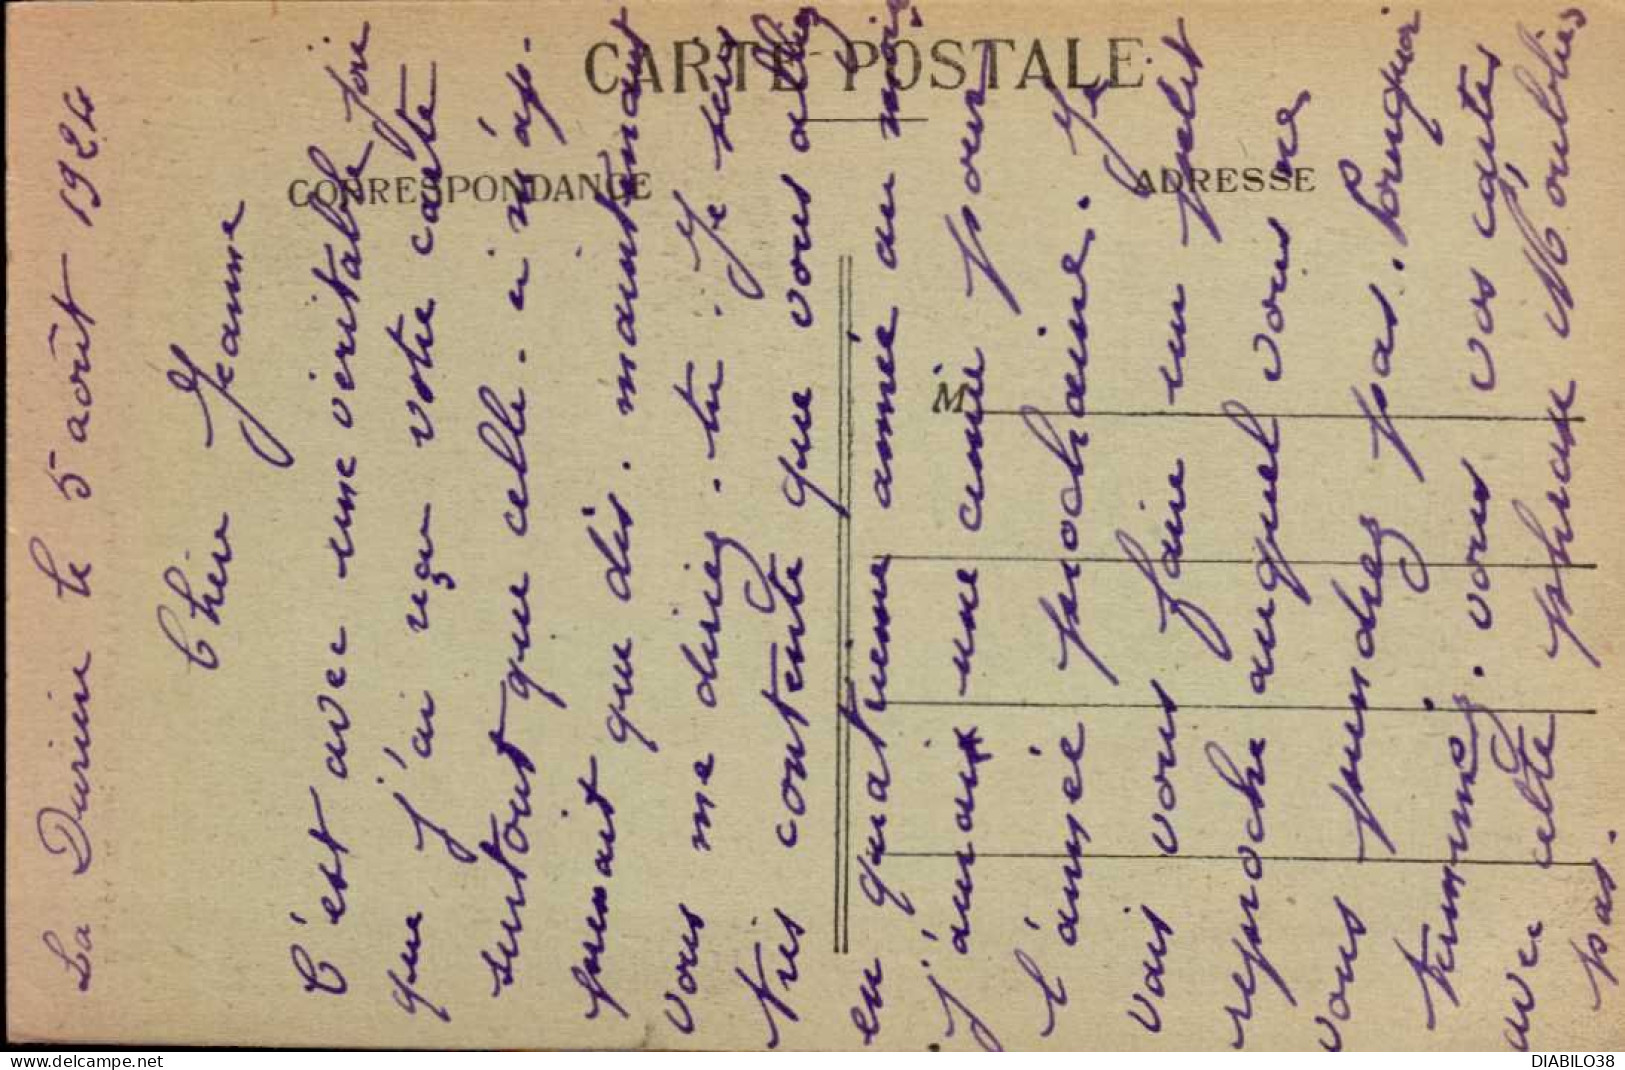 CARTE POSTALE
CORRESPONDANCE
ADRESSE
M
La Durinie le 5 août 1924
Chère Jeanne
C'est avec une véritable joie
que j'ai reçu votre carte
surtout que celle-ci m'ap-
prenait que dès maintenant
vous me diriez tu. Je suis
très contente que vous alliez
en quatrième année au moins
j'aurais une amie pour
l'année prochaine. Je
vais vous faire un petit
reproche auquel vous ne
vous prendrez pas. Pourquoi
terminez vous vos cartes
avec cette phrase N'oubliez
pas.
DIABILO38